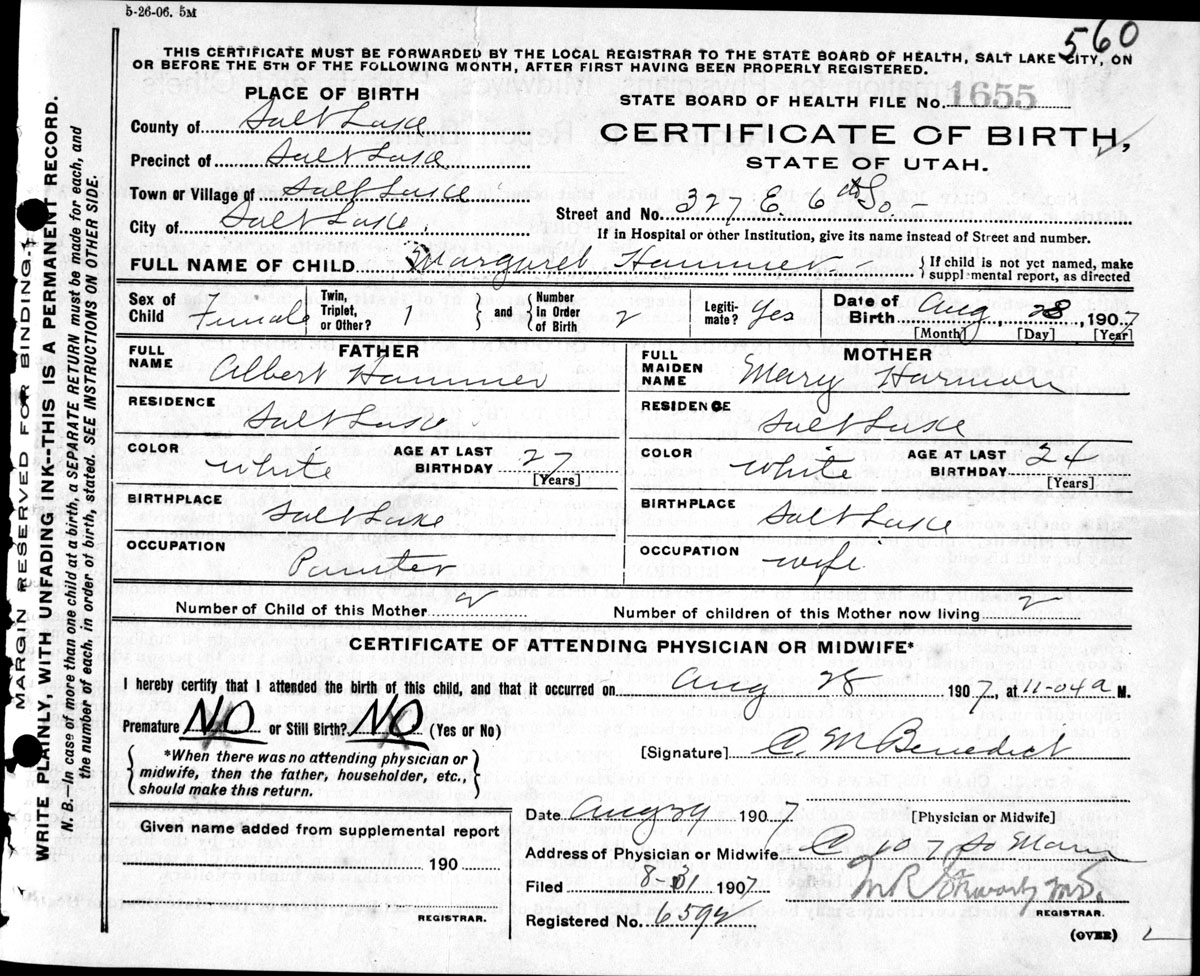 5-26-06. 5M
560
THIS CERTIFICATE MUST BE FORWARDED BY THE LOCAL REGISTRAR TO THE STATE BOARD OF HEALTH, SALT LAKE CITY, ON
OR BEFORE THE 5TH OF THE FOLLOWING MONTH, AFTER FIRST HAVING BEEN PROPERLY REGISTERED.
MARGIN RESERVED FOR BINDING.
WRITE PLAINLY, WITH UNFADING INK--THIS IS A PERMANENT RECORD.
N. B.—In case of more than one child at a birth, a SEPARATE RETURN must be made for each, and
the number of each, in order of birth, stated. SEE INSTRUCTIONS ON OTHER SIDE.
PLACE OF BIRTH
County of Salt Lake
Precinct of Salt Lake
Town or Village of Salt Lake
City of Salt Lake
STATE BOARD OF HEALTH FILE No. 1655
CERTIFICATE OF BIRTH,
STATE OF UTAH.
Street and No. 327 E. 6th So.
If in Hospital or other Institution, give its name instead of Street and number.
FULL NAME OF CHILD Margaret Hammer { If child is not yet named, make
supplemental report, as directed
Sex of Child Female Twin, Triplet, or Other? 1 } and { Number In Order of Birth 2 Legiti-mate? Yes Date of Birth Aug, 28, 1907
[Month] [Day] [Year]
FATHER
FULL NAME Albert Hammer
RESIDENCE Salt Lake
COLOR White AGE AT LAST BIRTHDAY 27
[Years]
BIRTHPLACE Salt Lake
OCCUPATION Painter
MOTHER
FULL MAIDEN NAME Mary Harmon
RESIDENCE Salt Lake
COLOR White AGE AT LAST BIRTHDAY 24
[Years]
BIRTHPLACE Salt Lake
OCCUPATION Wife
Number of Child of this Mother 2 Number of children of this Mother now living 2
CERTIFICATE OF ATTENDING PHYSICIAN OR MIDWIFE*
I hereby certify that I attended the birth of this child, and that it occurred on Aug 28 1907, at 11-04 a M.
Premature NO or Still Birth? NO (Yes or No)
{ *When there was no attending physician or
midwife, then the father, householder, etc.,
should make this return. }
[Signature] C. M Benedict
[Physician or Midwife]
Given name added from supplemental report
190
REGISTRAR.
Date Aug 29 1907
Address of Physician or Midwife 107 So Main
Filed 8-31 1907
Registered No.
M R Stewart M.D.
REGISTRAR.
(OVER)